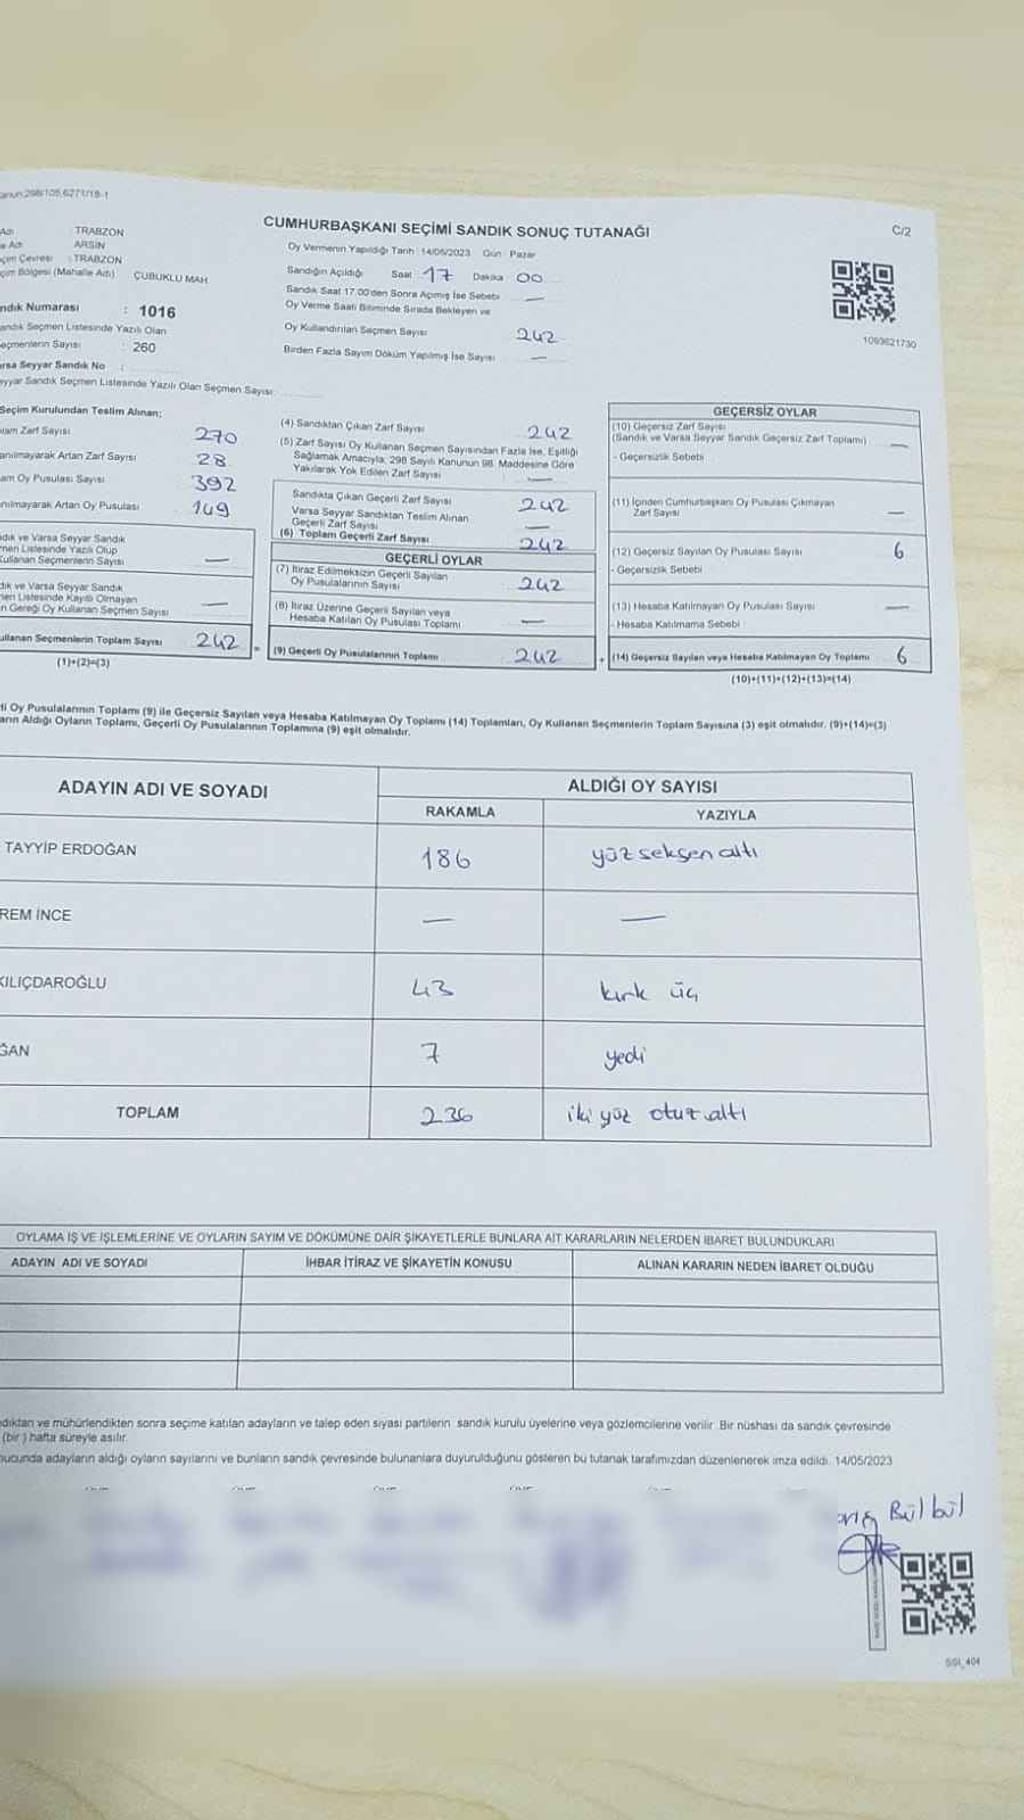 CUMHURBAŞKANI SEÇİMİ SANDIK SONUÇ TUTANAĞI
C/2
TRABZON
ARSİN
TRABZON
çim Bölgesi (Mahalle Adı) ÇUBUKLU MAH
ndık Numarası : 1016
andık Seçmen Listesinde Yazılı Olan
eçmenlerin Sayısı : 260
arsa Seyyar Sandık No :
eyyar Sandık Seçmen Listesinde Yazılı Olan Seçmen Sayısı
Oy Vermenin Yapıldığı Tarih 14/05/2023 Gün Pazar
Sandığın Açıldığı Saat 17 Dakika 00
Sandık Saat 17.00'den Sonra Açımış İse Sebebi —
Oy Verme Saati Bitiminde Sırada Bekleyen ve
Oy Kullandırılan Seçmen Sayısı 242
Birden Fazla Sayım Döküm Yapılmış İse Sayısı —
1093621730
Seçim Kurulundan Teslim Alınan;
lam Zarf Sayısı 270
anılmayarak Artan Zarf Sayısı 28
am Oy Pusulası Sayısı 392
anılmayarak Artan Oy Pusulası 149
dık ve Varsa Seyyar Sandık
men Listesinde Yazılı Olup
Kullanan Seçmenlerin Sayısı —
dık ve Varsa Seyyar Sandık
men Listesinde Kayıtlı Olmayan
n Gereği Oy Kullanan Seçmen Sayısı —
ullanan Seçmenlerin Toplam Sayısı 242
(1)+(2)=(3)
(4) Sandıktan Çıkan Zarf Sayısı 242
(5) Zarf Sayısı Oy Kullanan Seçmen Sayısından Fazla İse, Eşitliği
Sağlamak Amacıyla, 298 Sayılı Kanunun 98. Maddesine Göre
Yakılarak Yok Edilen Zarf Sayısı —
Sandıkta Çıkan Geçerli Zarf Sayısı 242
Varsa Seyyar Sandıktan Teslim Alınan
Geçerli Zarf Sayısı —
(6) Toplam Geçerli Zarf Sayısı 242
GEÇERLİ OYLAR
(7) İtiraz Edilmeksizin Geçerli Sayılan
Oy Pusulalarının Sayısı 242
(8) İtiraz Üzerine Geçerli Sayılan veya
Hesaba Katılan Oy Pusulası Toplamı —
(9) Geçerli Oy Pusulalarının Toplamı 242
GEÇERSİZ OYLAR
(10) Geçersiz Zarf Sayısı
(Sandık ve Varsa Seyyar Sandık Geçersiz Zarf Toplamı) —
- Geçersizlik Sebebi
(11) İçinden Cumhurbaşkanı Oy Pusulası Çıkmayan
Zarf Sayısı —
(12) Geçersiz Sayılan Oy Pusulası Sayısı 6
- Geçersizlik Sebebi
(13) Hesaba Katılmayan Oy Pusulası Sayısı —
- Hesaba Katılmama Sebebi
(14) Geçersiz Sayılan veya Hesaba Katılmayan Oy Toplamı 6
(10)+(11)+(12)+(13)=(14)
li Oy Pusulalarının Toplamı (9) ile Geçersiz Sayılan veya Hesaba Katılmayan Oy Toplamı (14) Toplamları, Oy Kullanan Seçmenlerin Toplam Sayısına (3) eşit olmalıdır. (9)+(14)=(3)
arın Aldığı Oyların Toplamı, Geçerli Oy Pusulalarının Toplamına (9) eşit olmalıdır.
ADAYIN ADI VE SOYADI ALDIĞI OY SAYISI
RAKAMLA YAZIYLA
TAYYİP ERDOĞAN 186 yüz seksen altı
REM İNCE — —
KILIÇDAROĞLU 43 kırk üç
ĞAN 7 yedi
TOPLAM 236 iki yüz otuz altı
OYLAMA İŞ VE İŞLEMLERİNE VE OYLARIN SAYIM VE DÖKÜMÜNE DAİR ŞİKAYETLERLE BUNLARA AİT KARARLARIN NELERDEN İBARET BULUNDUKLARI
ADAYIN ADI VE SOYADI İHBAR İTİRAZ VE ŞİKAYETİN KONUSU ALINAN KARARIN NEDEN İBARET OLDUĞU
dıktan ve mühürlendikten sonra seçime katılan adayların ve talep eden siyasi partilerin sandık kurulu üyelerine veya gözlemcilerine verilir. Bir nüshası da sandık çevresinde
(bir) hafta süreyle asılır.
ucunda adayların aldığı oyların sayılarını ve bunların sandık çevresinde bulunanlara duyurulduğunu gösteren bu tutanak tarafımızdan düzenlenerek imza edildi. 14/05/2023
Bülbül